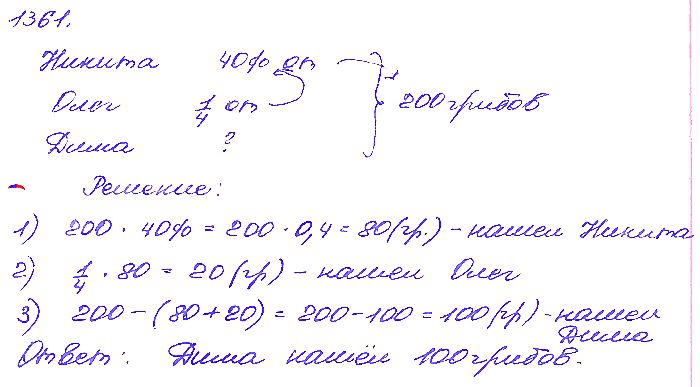 1361.
Никита 40% от
Олег 1/4 от } 200 грибов
Дима ?
Решение:
1) 200 · 40% = 200 · 0,4 = 80 (гр.) - нашел Никита
2) 1/4 · 80 = 20 (гр) - нашел Олег
3) 200 - (80 + 20) = 200 - 100 = 100 (гр) - нашел
Дима
Ответ: Дима нашёл 100 грибов.